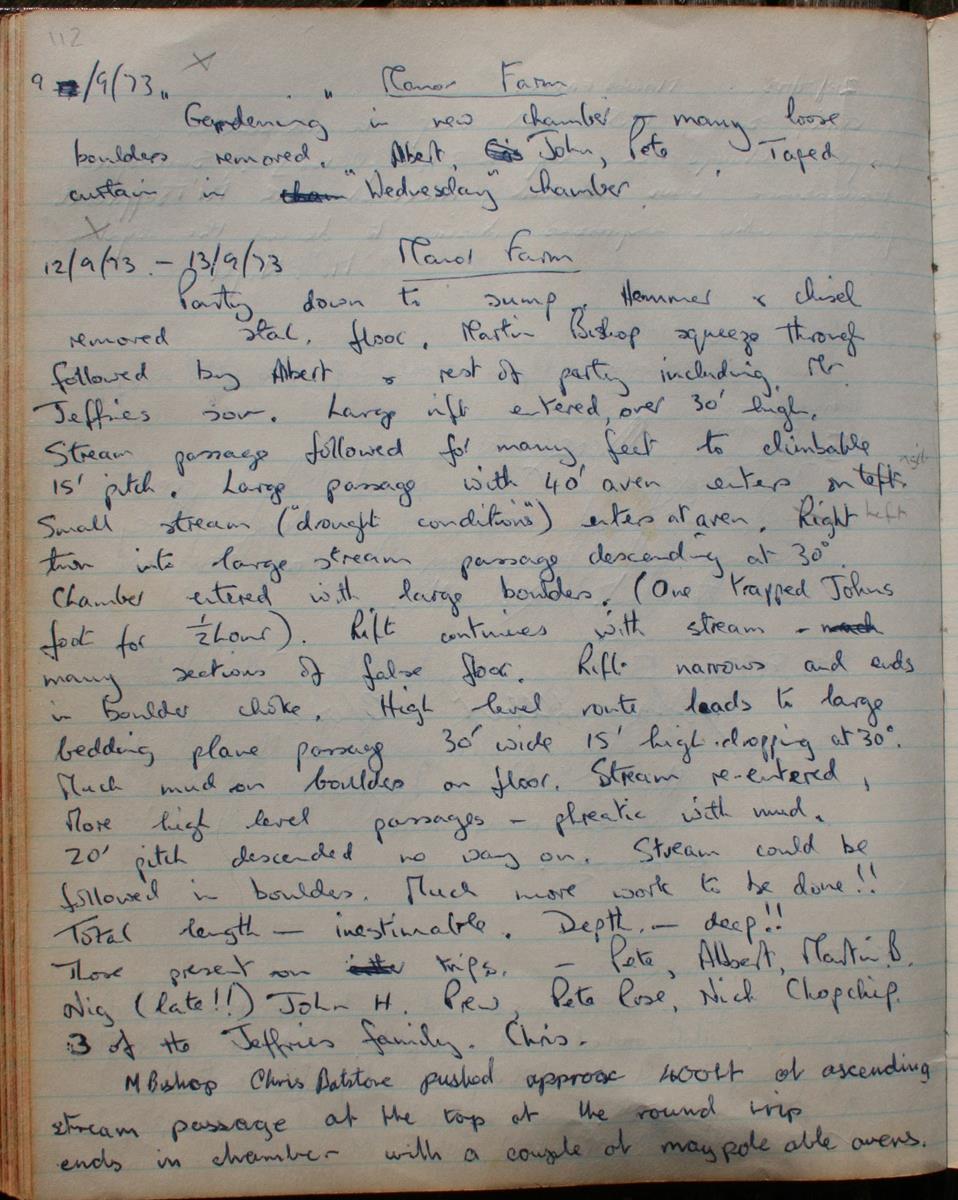 112
9 /9/73 " " Manor Farm
Gardening in new chamber - many loose
boulders removed. Albert, John, Pete Taped
curtain in cham "Wednesday" chamber
12/9/73 - 13/9/73 Manor Farm
Party down to sump. Hammer & chisel
removed stal. floor. Martin Bishop squeeze through
followed by Albert & rest of party including Mr
Jeffries son. Large rift entered, over 30' high.
Stream passage followed for many feet to climbable
15' pitch. Large passage with 40' aven enters on left.
Small stream ("drought conditions") enters at aven. Right left
turn into large stream passage descending at 30°
Chamber entered with large boulders. (One trapped Johns
foot for ½ hour). Rift continues with stream - much
many sections of false floor. Rift narrows and ends
in boulder choke. High level route leads to large
bedding plane passage 30' wide 15' high dropping at 30°.
Much mud on boulders on floor. Stream re-entered,
More high level passages - phreatic with mud.
20' pitch descended no way on. Stream could be
followed in boulders. Much more work to be done!!
Total length - inestimable. Depth. - deep!!
Those present on trips. - Pete, Albert, Martin B.
Nig (late!!) John H. Prew, Pete Rose, Nick Chopchip.
3 of the Jeffries family. Chris.
M Bishop Chris Batstone pushed approx 400ft of ascending
stream passage at the top of the round trip
ends in chamber - with a couple of maypole able avens.